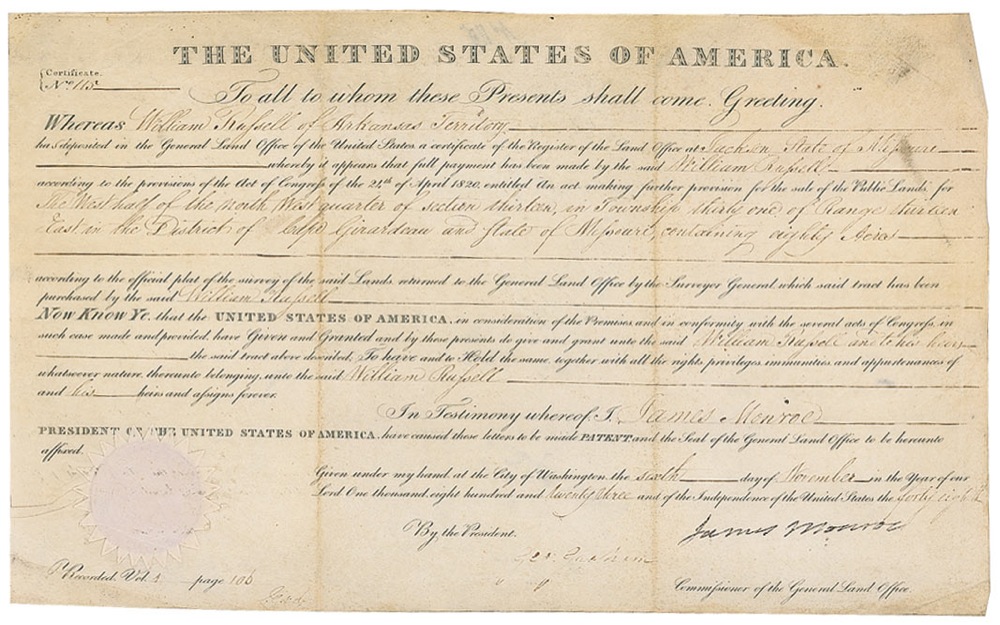 THE UNITED STATES OF AMERICA.
Certificate.
No. 115
To all to whom these Presents shall come, Greeting.
Whereas William Russell of Arkansas Territory
has deposited in the General Land Office of the United States, a certificate of the Register of the Land Office at Jackson State of Missouri
whereby it appears that full payment has been made by the said William Russell
according to the provisions of the Act of Congress of the 24th of April 1820, entitled An act making further provision for the sale of the Public Lands, for
The West half of the north West quarter of section thirteen, in Township thirty one of Range thirteen
East in the District of Cape Girardeau and State of Missouri, containing eighty Acres
according to the official plat of the survey of the said Lands, returned to the General Land Office by the Surveyor General which said tract has been
purchased by the said William Russell
Now Know Ye, that the UNITED STATES OF AMERICA, in consideration of the Premises, and in conformity with the several acts of Congress, in
such case made and provided, have Given and Granted and by these presents do give and grant unto the said William Russell and to his heirs
the said tract above described; To have and to Hold the same, together with all the rights, privileges, immunities, and appurtenances of
whatsoever nature, thereunto belonging, unto the said William Russell
and his heirs and assigns forever.
In Testimony whereof, I, James Monroe
PRESIDENT OF THE UNITED STATES OF AMERICA, have caused these letters to be made PATENT, and the Seal of the General Land Office to be hereunto
affixed.
Given under my hand, at the City of Washington, the sixth day of November in the Year of our
Lord One thousand, eight hundred and twenty three and of the Independence of the United States the forty eighth
By the President.
James Monroe
Geo. Graham
Recorded, Vol. page 106
Commissioner of the General Land Office.